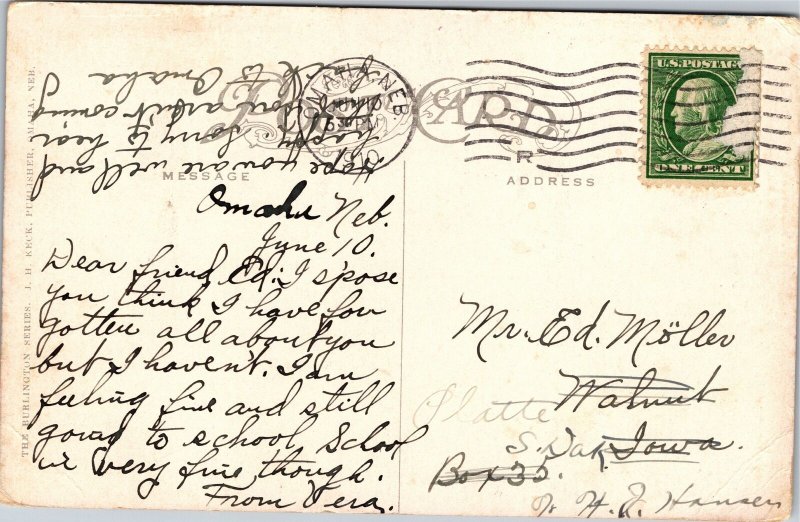 THE BURLINGTON SERIES. J. H. KECK, PUBLISHER, OMAHA, NEB.
POST CARD
OMAHA, NEB.
JUN 10
530 PM
1910
R
U.S. POSTAGE
ONE CENT
MESSAGE
Omaha Neb.
June 10.
Dear friend Ed: I s'pose
you think I have for
gotten all about you
but I haven't. I am
feeling fine and still
going to school. School
is very fine though.
From Vera.
Hope you are well and
happy. Sorry to hear
you ain't coming
back to Omaha
ADDRESS
Mr. Ed. Möller
Walnut
Platte
S. Dak Iowa.
Box 33.
% H. J. Hansen